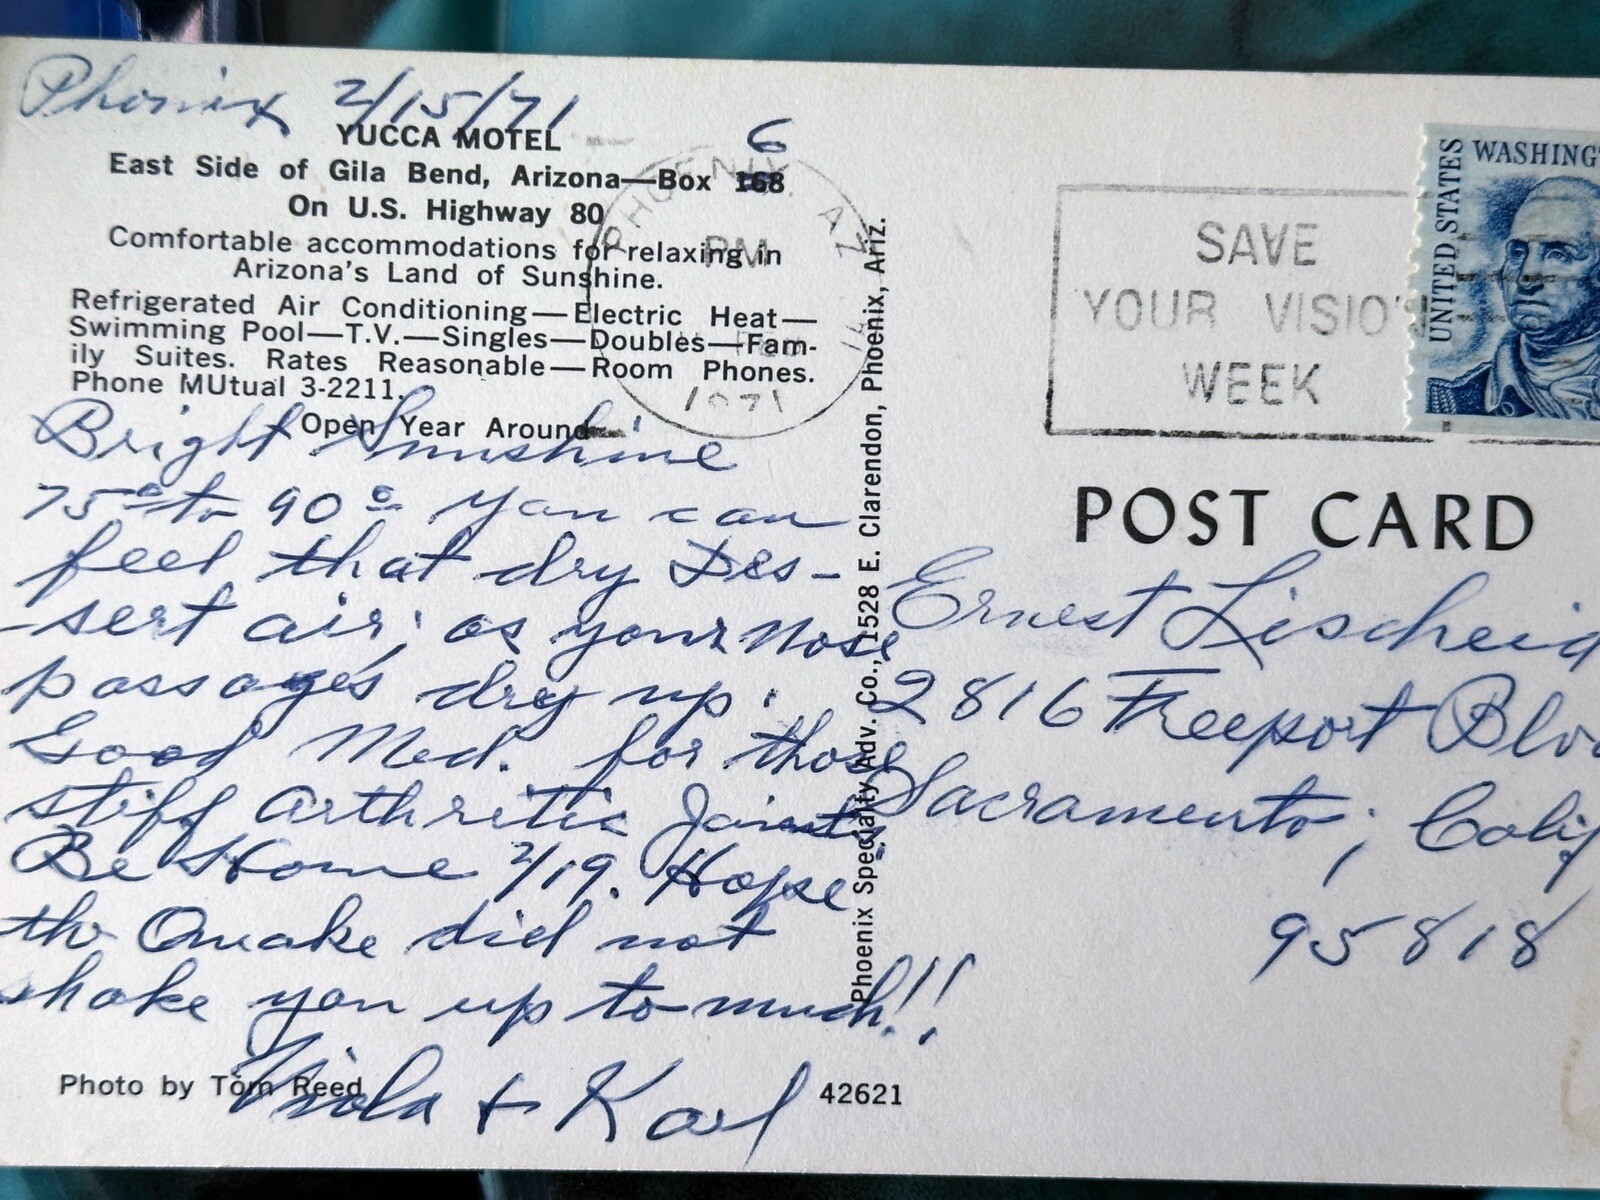 Phoenix 2/15/71
YUCCA MOTEL
6
East Side of Gila Bend, Arizona—Box 168
On U.S. Highway 80
Comfortable accommodations for relaxing in
Arizona's Land of Sunshine.
Refrigerated Air Conditioning—Electric Heat—
Swimming Pool—T.V.—Singles—Doubles—Fam-
ily Suites. Rates Reasonable—Room Phones.
Phone MUtual 3-2211.
Open Year Around
Bright Sunshine
75° to 90° you can
feel that dry Des-
-sert air; as your nose
passages dry up.
Good Med. for those
stiff arthritic Joints,
Be Home 2/19. Hope
the Quake did not
shake you up to much!!
Viola + Karl
Photo by Tom Reed
42621
Phoenix Specialty Adv. Co., 1528 E. Clarendon, Phoenix, Ariz.
PHOENIX, AZ
PM
1971
SAVE
YOUR VISION
WEEK
UNITED STATES
WASHING
POST CARD
Ernest Lischeid
2816 Freeport Blvd
Sacramento, Calif
95818